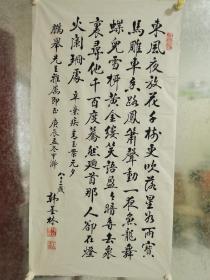 東風夜放花千樹更吹落星如雨寶
馬雕車香滿路鳳簫聲動一夜魚龍舞
蛾兒雪柳黃金縷笑語盈盈暗香去衆
裏尋他千百度驀然迴首那人卻在燈
火闌珊處 辛棄疾青玉案元夕
鵬舉先生雅屬即正 庚辰孟冬中浣 八十二歲 韓墨